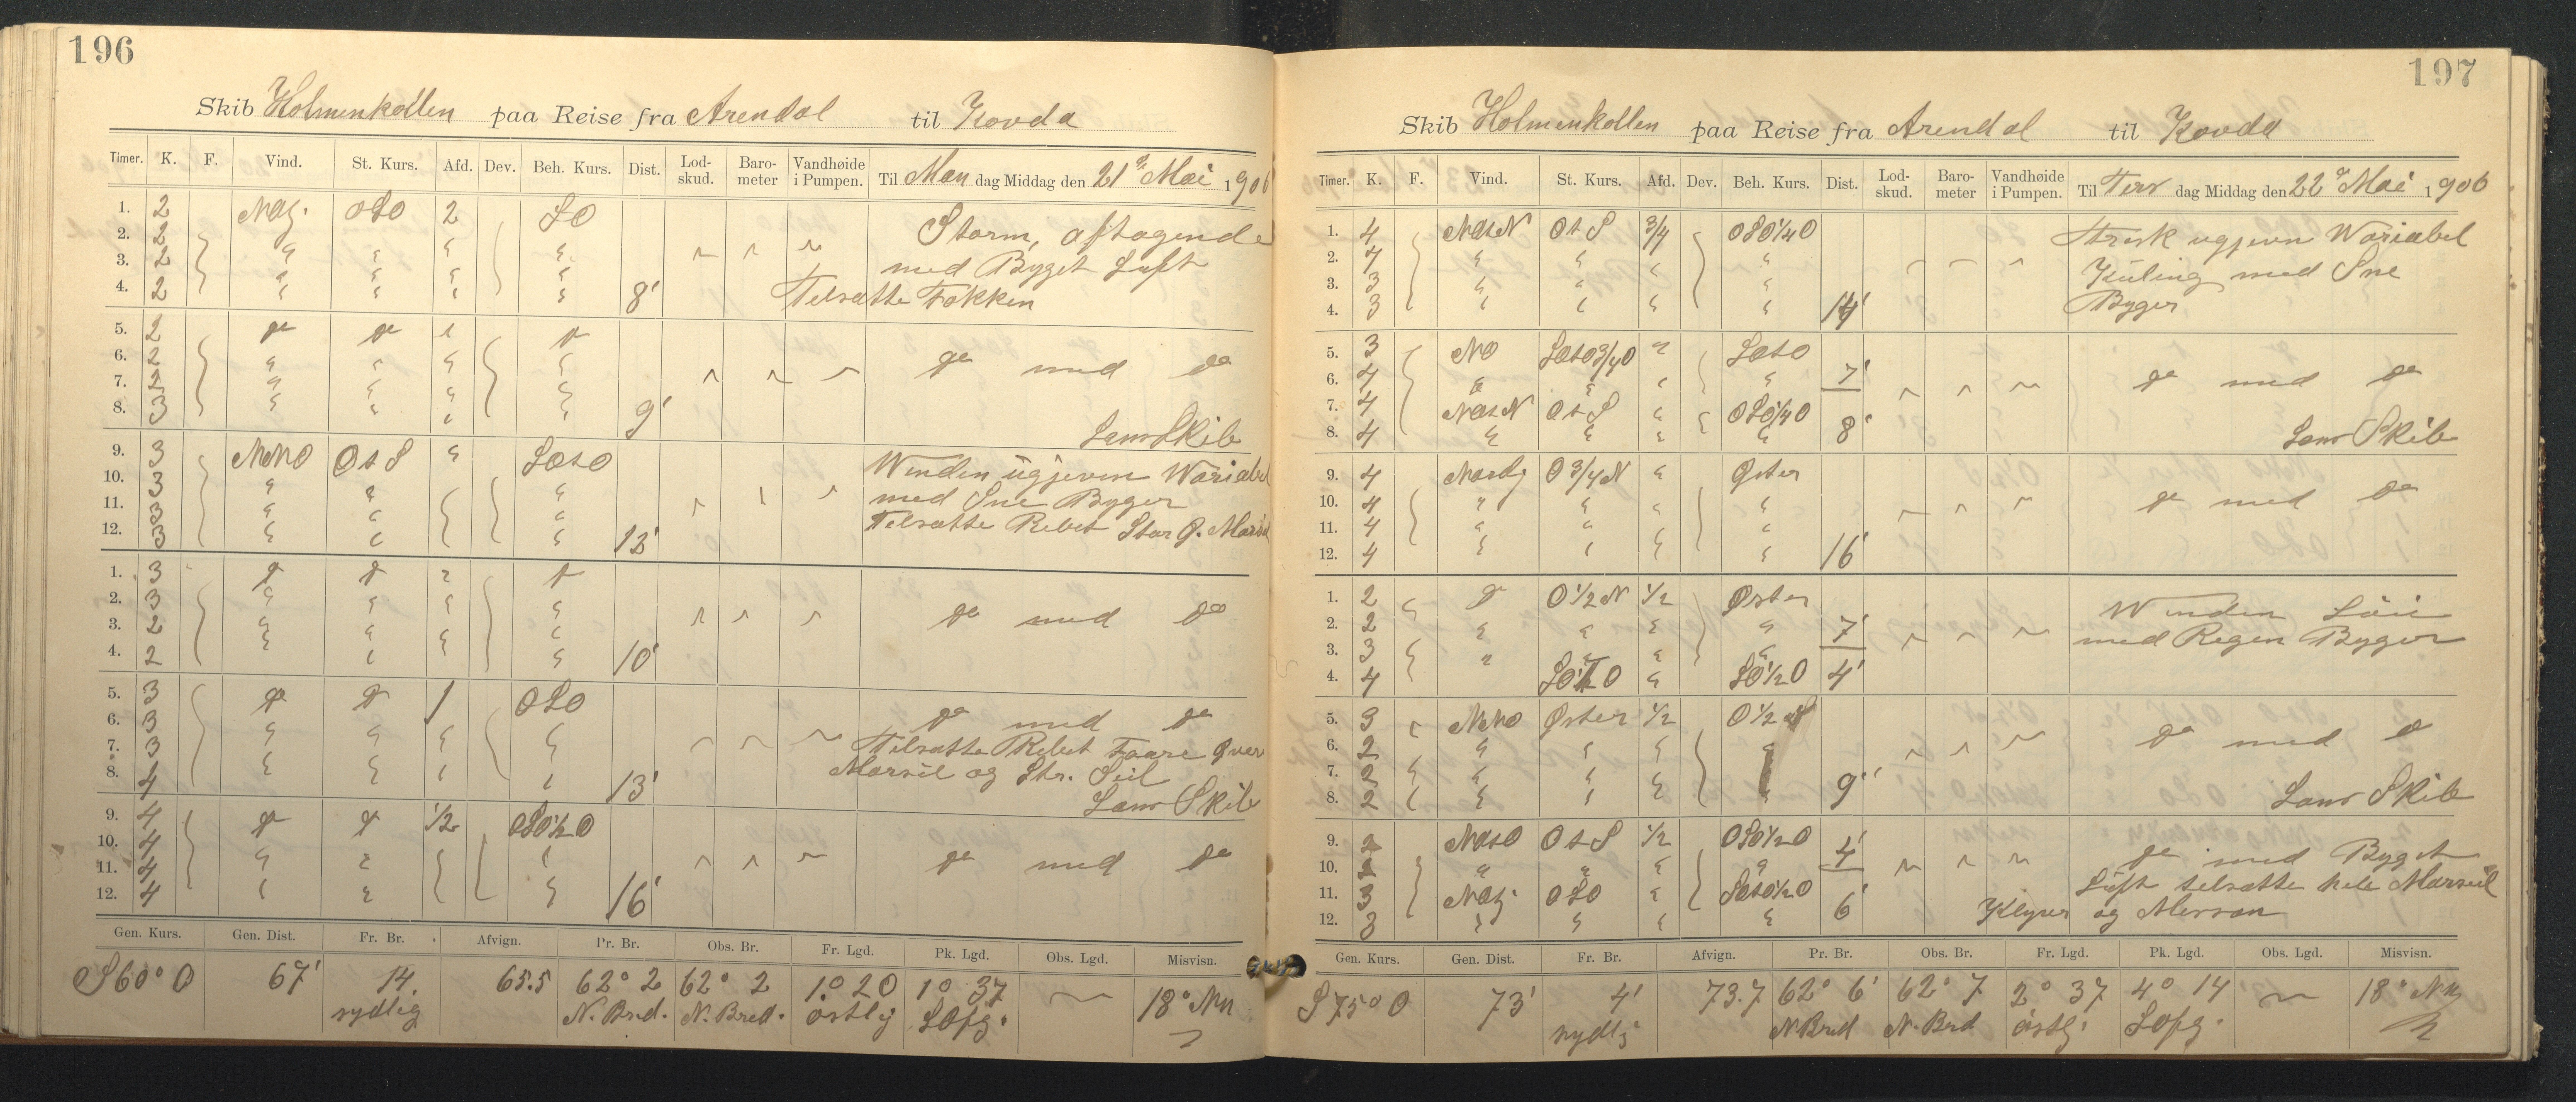 196
Skib Holmenkollen paa Reise fra Arendal til Kovda
Timer. K. F. Vind. St. Kurs. Afd. Dev. Beh. Kurs. Dist. Lod-skud. Baro-meter Vandhøide i Pumpen. Til Man dag Middag den 21 de Mai 1906
1. 2 OSO 2 SO Storm, aftagende
2. 2 " " " "
3. 2 " " " " med Byget Luft
4. 2 " " " " 8' Tilsatte Fokken
5. 2 do do " do
6. 2 " " " " do med do
7. 2 " " " "
8. 3 " " " " 9' Lens Skib
9. 3 NNO O t S " SOtO Winden ugjeven Wariabel
10. 3 " " " med Sne Byger
11. 3 " " " Tilsatte Rebet Stor
12. 3 " " " 12'
1. 3 do do " do
2. 3 " " " " do med do
3. 2 " " " "
4. 2 " " " " 10'
5. 3 do do 1 OSO do med do
6. 3 " " " " Tilsatte Rebet Faare Øver
7. 3 " " " " Mersseil og Str. Seil
8. 4 " " " " 13' Lens Skib
9. 4 do do 1/2 OSO1/2O
10. 4 " " " do med do
11. 4 " "
12. 4 " " " 16'
Gen. Kurs. Gen. Dist. Fr. Br. Afvign. Pr. Br. Obs. Br. Fr. Lgd. Pk. Lgd. Obs. Lgd. Misvisn.
S 60° O 67' 14. 65.5 62° 2 62° 2 1° 20 1° 37 18° NW
sydlig N. Bred. N. Bred. østlig
197
Skib Holmenkollen paa Reise fra Arendal til Kovda
Timer. K. F. Vind. St. Kurs. Afd. Dev. Beh. Kurs. Dist. Lod-skud. Baro-meter Vandhøide i Pumpen. Til Tirs dag Middag den 22 de Mai 1906
1. 4 NOtN O t S 3/4 OSO1/4O Frisk ugjevn Wariabel
2. 4 " " " " Kuling med Sne
3. 3 " " " Byger
4. 3 " " " " 14'
5. 3 NO SOtO3/4O " SOtO
6. 4 " " " " 7' do med do
7. 4 NOtN O t S " OSO1/4O
8. 4 " " " " 8' Lens Skib
9. 4 Nordlg O 3/4 N " Øster
10. 4 " " " " do med do
11. 4 " " " "
12. 4 " " " " 16'
1. 2 do O 1/2 N 1/2 Øster Winden Løie
2. 2 " " " " 7' med Regen Byger
3. 3 " " " "
4. 4 " SO1/2O 4'
5. 3 NNO Øster 1/2 O 1/2
6. 2 " " " do med do
7. 2 " " "
8. 2 " " " 9' Lens Skib
9. 2 NOtO O t S 1/2 OSO1/2O 4' do med Byget
10. 2 " " " " Luft tilsatte hele Mersseil
11. 3 OSO " SOtO1/2O Klyver og Mersan
12. 3 " " " " 6'
Gen. Kurs. Gen. Dist. Fr. Br. Afvign. Pr. Br. Obs. Br. Fr. Lgd. Pk. Lgd. Obs. Lgd. Misvisn.
S 75° O 73' 4' 73.7 62° 6' 62° 7 2° 37 4° 14 18° NW
sydlg N Bred N. Brd østlg.